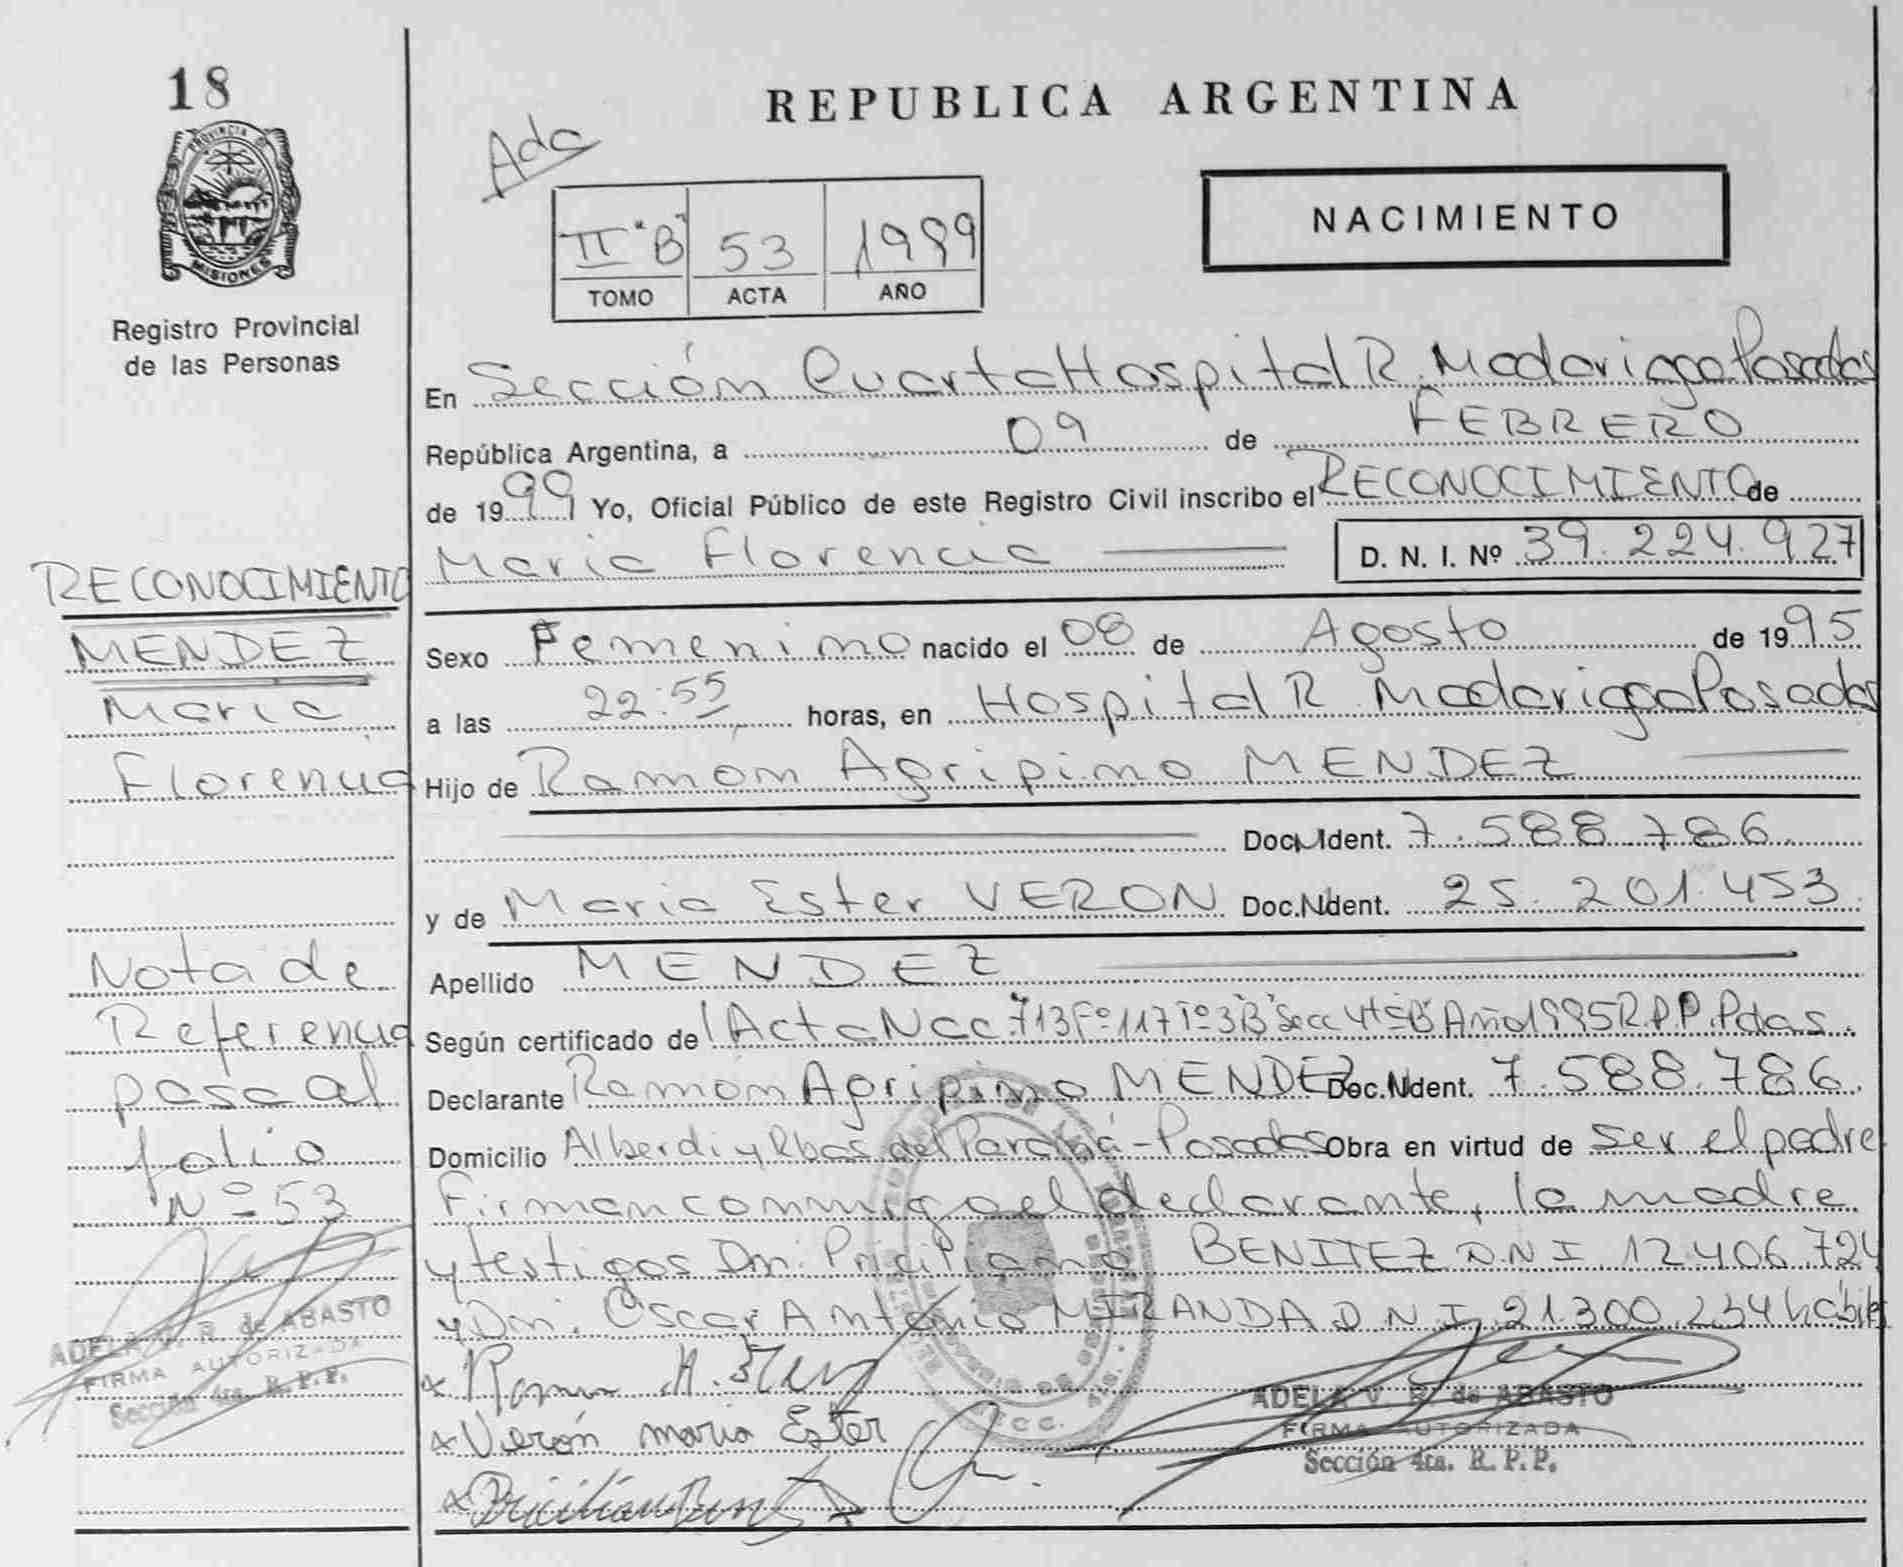 18
PROVINCIA D
MISIONES
Registro Provincial
de las Personas
RECONOCIMIENTO
MENDEZ
Maria
Florencia
Nota de
Referencia
pasa al
folio
Nº 53
ADELA V. R. de ABASTO
FIRMA AUTORIZADA
Sección 4ta. R. P. P.
REPUBLICA ARGENTINA
Ada
II "B" 53 1999
TOMO ACTA AÑO
NACIMIENTO
En Sección Cuarta Hospital R. Madariaga Posadas
República Argentina, a 09 de FEBRERO
de 1999 Yo, Oficial Público de este Registro Civil inscribo el RECONOCIMIENTO de
Maria Florencia D. N. I. Nº 39.224.927
Sexo Femenino nacido el 08 de Agosto de 1995
a las 22:55 horas, en Hospital R. Madariaga Posadas
Hijo de Ramón Agripino MENDEZ
Doc. Ident. 7.588.786
y de Maria Ester VERON Doc. Ident. 25.201.453
Apellido MENDEZ
Según certificado de Acta Nac. 713 Fº 117 Tº 3"B" Secc 4ta "B" Año 1995 R.P.P. Pdas.
Declarante Ramón Agripino MENDEZ Doc. Ident. 7.588.786
Domicilio Alberdi y Rbas del Paraná - Posadas Obra en virtud de ser el padre
Firman conmigo el declarante, la madre
y testigos Dn. Priciliano BENITEZ D.N.I. 12.406.724
y Dn. Oscar Antonio MIRANDA D.N.I. 21.300.234 hábiles
x Ramon A.
x Verón maria Ester
x
ADELA V. R. de ABASTO
FIRMA AUTORIZADA
Sección 4ta. R. P. P.